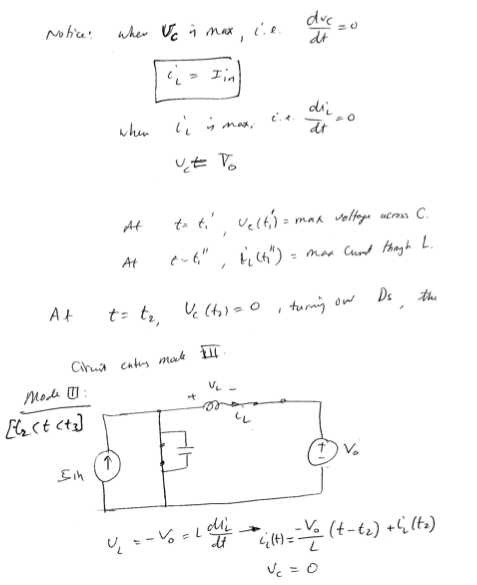 Notice: when Vc is max, i.e. dvc/dt = 0
iL = Iin
when iL is max, i.e. diL/dt = 0
vc = Vo
At t = t1', Vc(t1') = max voltage across C.
At t = t1'', iL(t1'') = max current through L.
At t = t2, Vc(t2) = 0, turning on Ds, the
Circuit enters mode III.
Mode III:
[t2 < t < t3]
+ VL -
iL
Iin
+ -
Vo
VL = -Vo = L diL/dt → iL(t) = -Vo/L (t-t2) + iL(t2)
Vc = 0